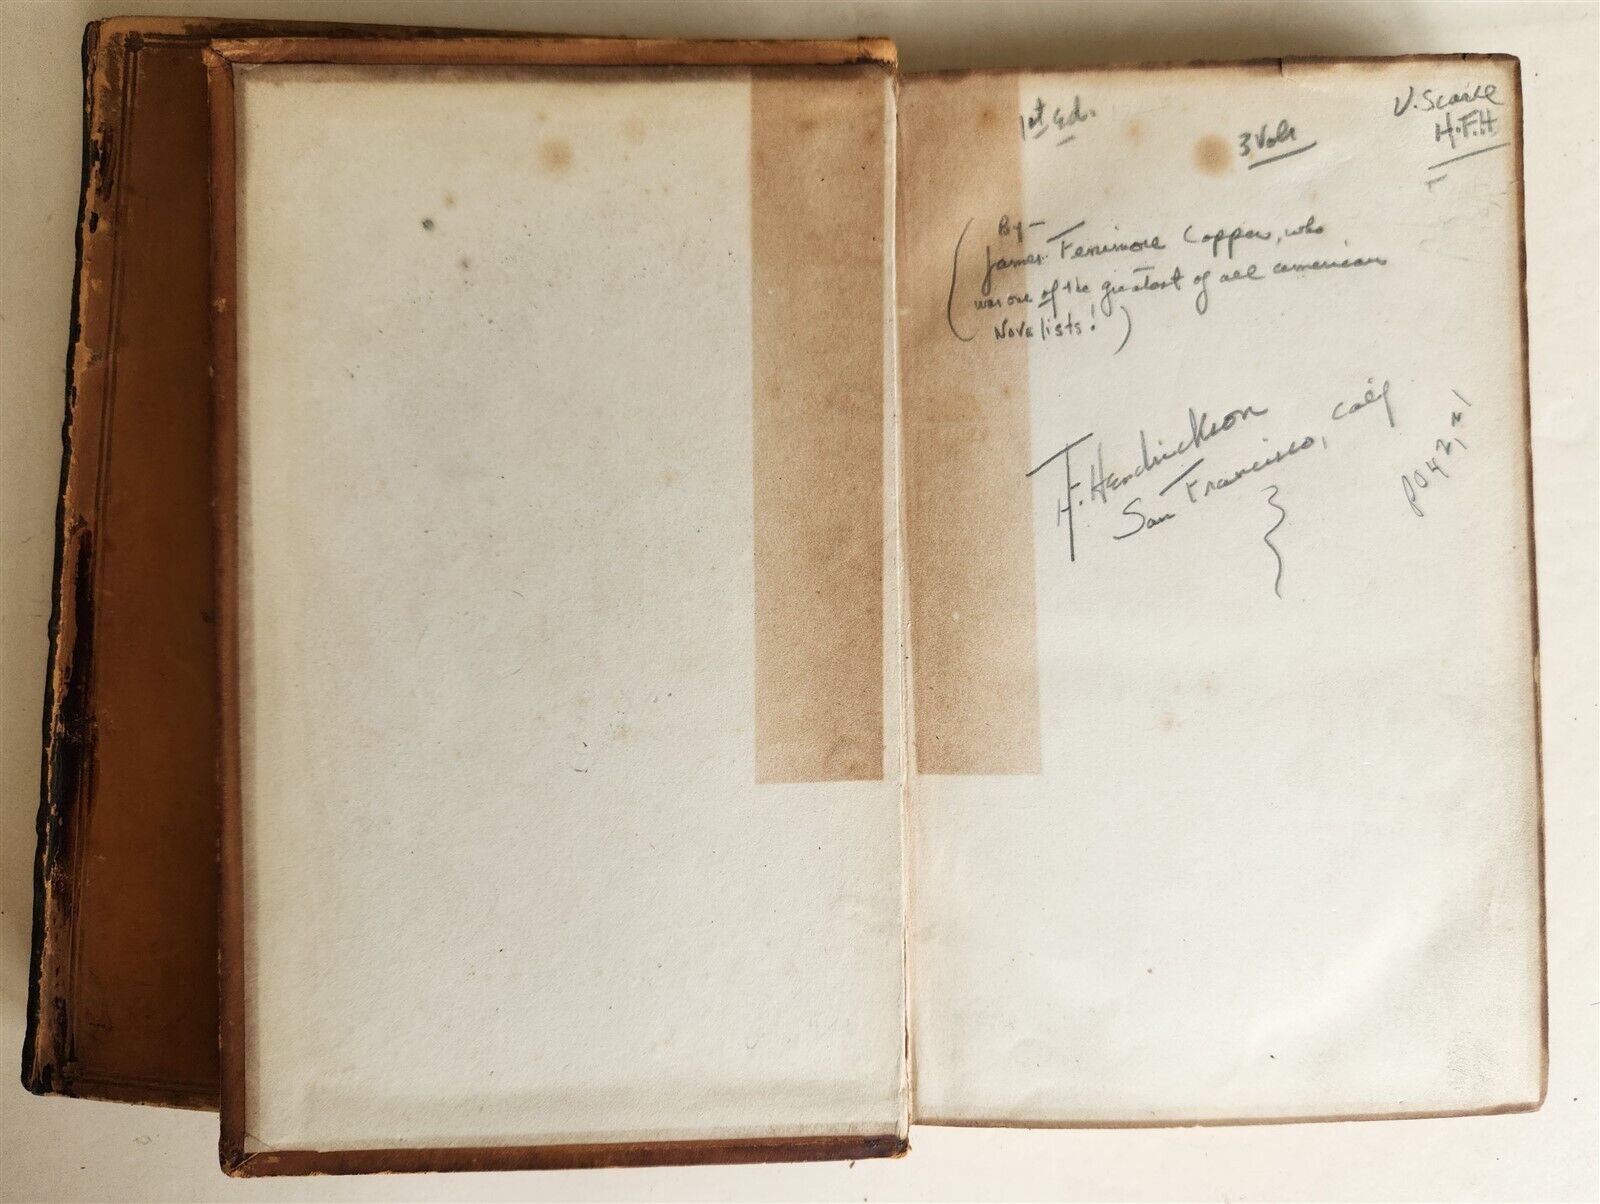 1st Ed.
3 Vols
V. Scarce
H.F.H
By-
James Fenimore Copper, who
was one of the greatest of all american
Novelists!
H. Hendrickson
San Francisco, Calif